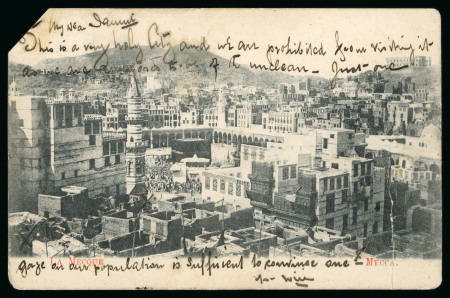 My dear Samuel
This is a very holy City and we are prohibited from visiting it
as we are regarded to be of it unclean - Just one
LA MECQUE
MECCA.
gaze on our population is Sufficient to convince one